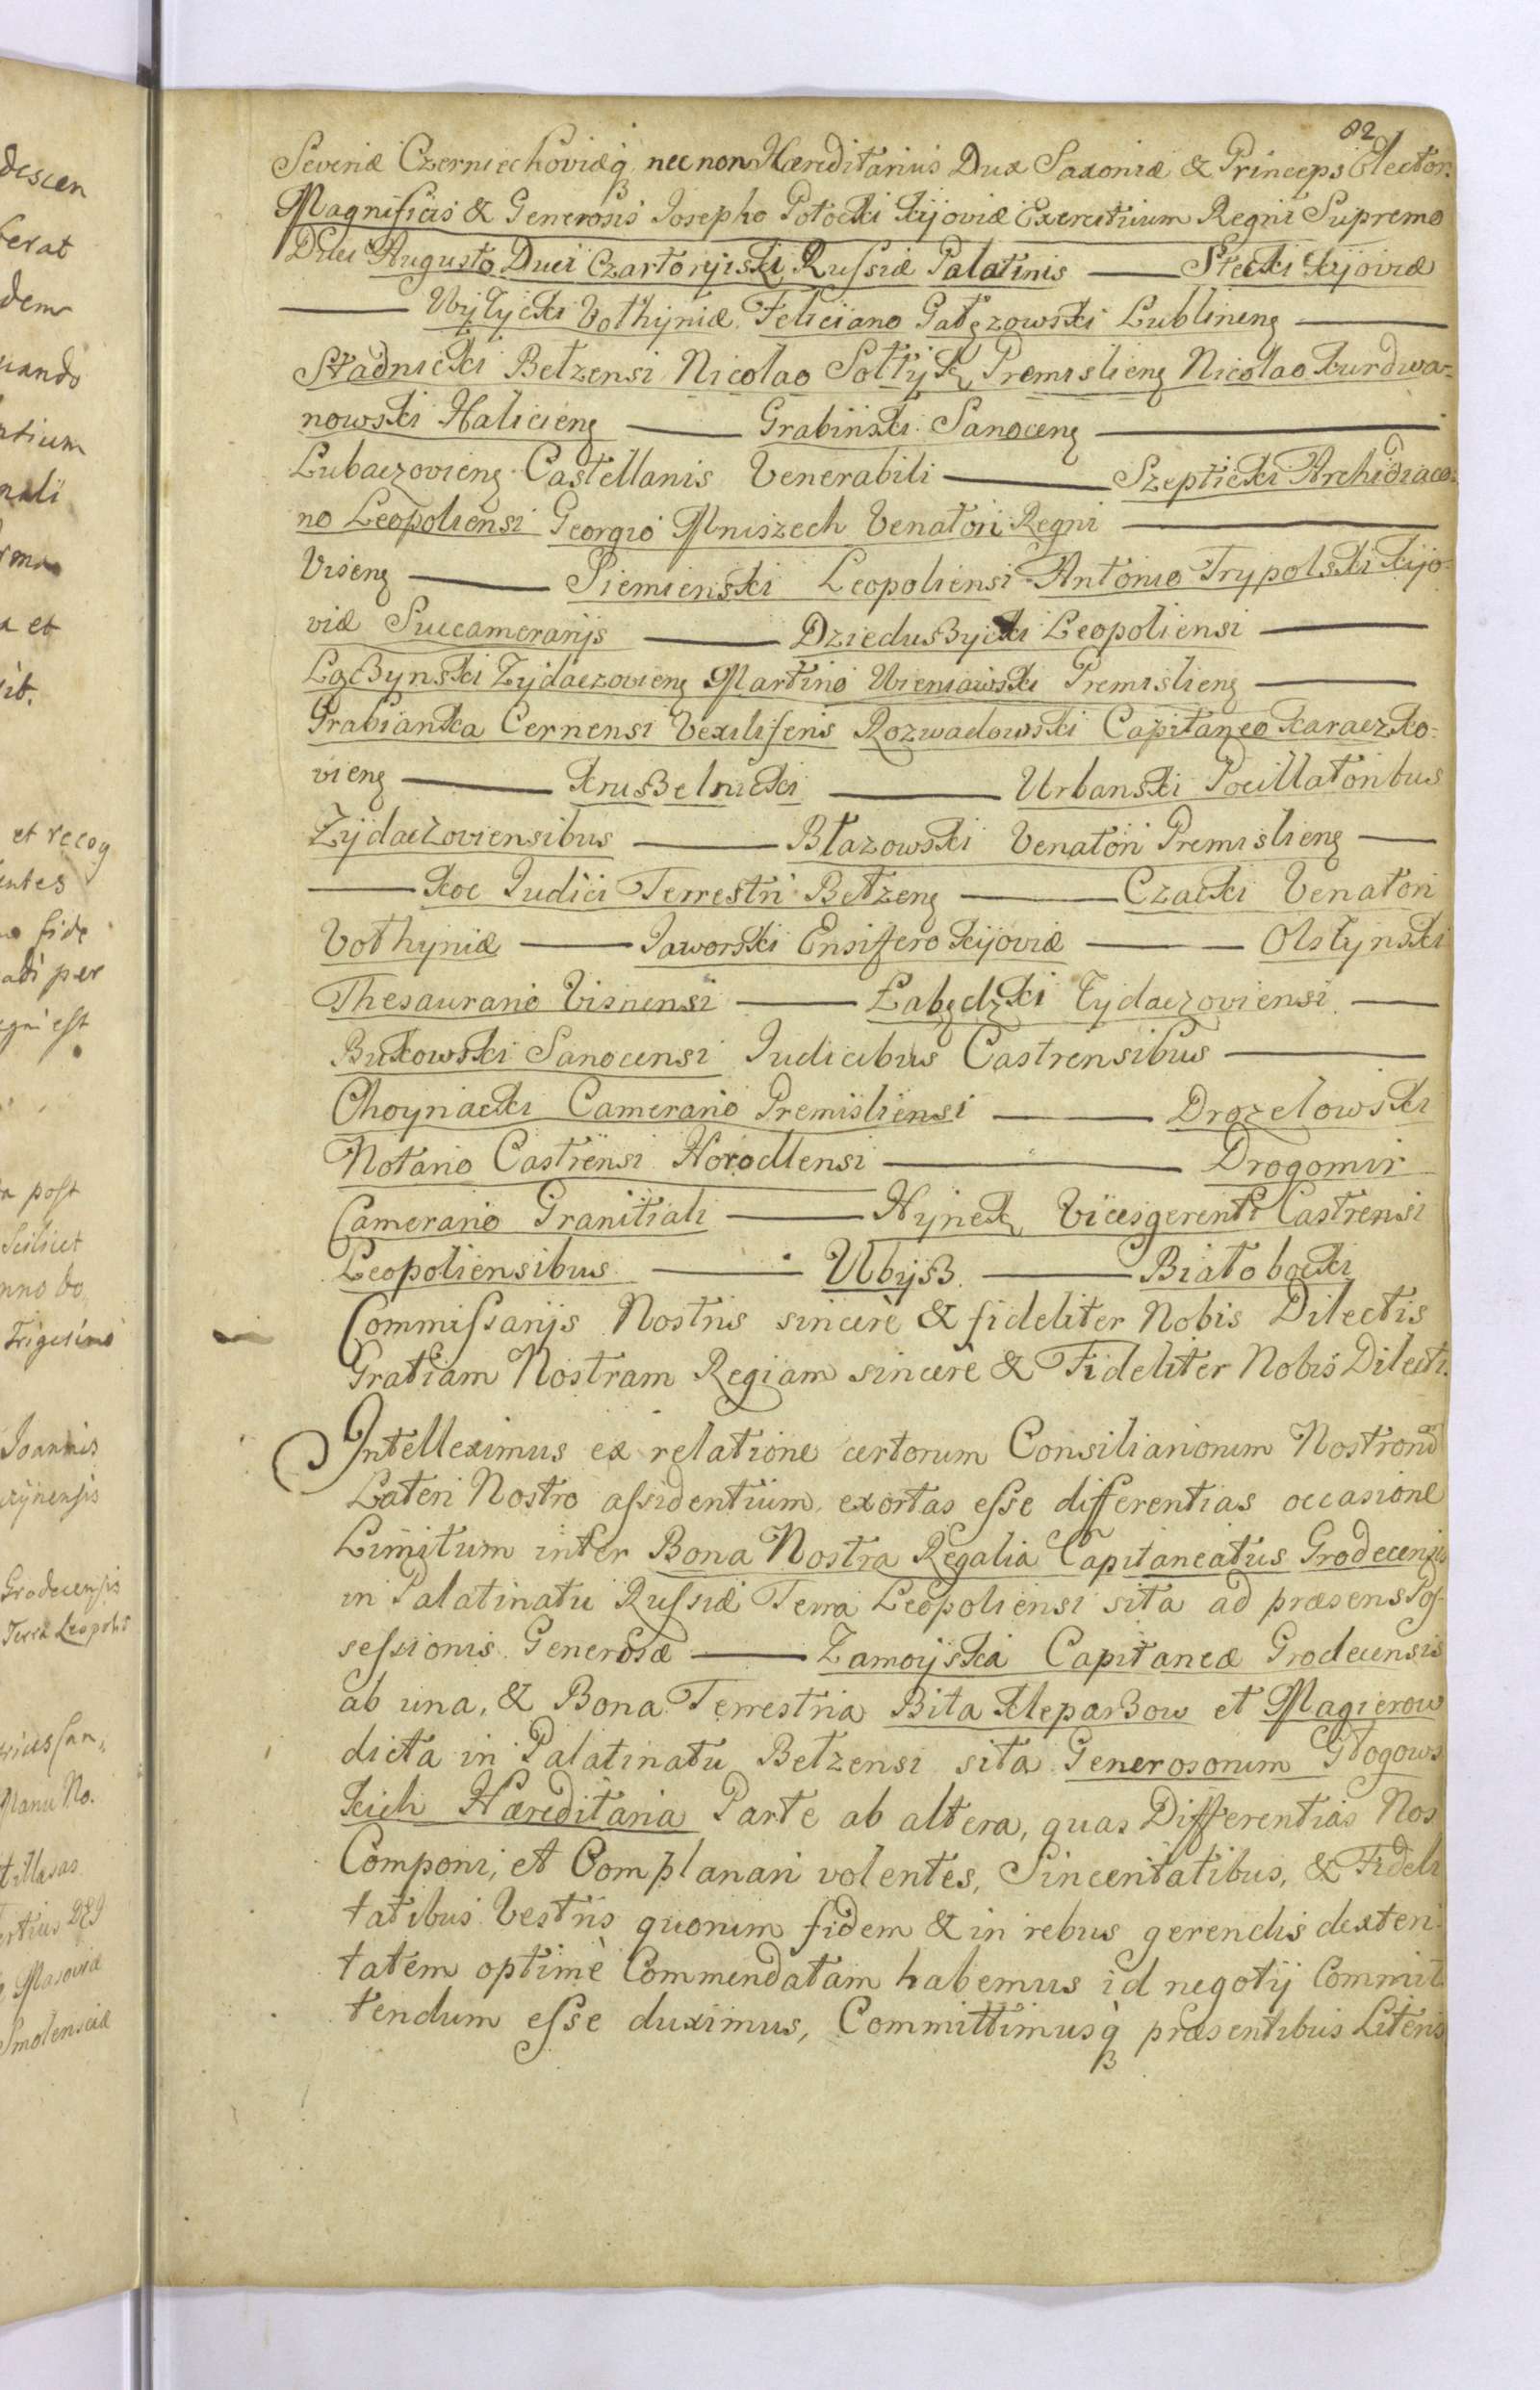 82
Severiæ Czerniechoviæq nec non Hæreditarius Dux Saxoniæ & Princeps Elector.
Magnificis & Generosis Josepho Potocki Kijoviæ Exercituum Regni Supremo
Duci Augusto Duci Czartoryiski Russiæ Palatinis — Stecki Kijoviæ
— Wyżycki Wołhyniæ Feliciano Gałęzowski Lublineng —
Stadnicki Bełzensi Nicolao Sołtyk Premislieng Nicolao Kurdwa-
nowski Halicieng — Grabiński Sanoceng —
Lubaczovieng Castellanis Venerabili — Szepticki Archidiaco-
no Leopoliensi Georgio Mniszech Venatori Regni —
Viseng — Siemieński Leopoliensi Antonio Trypolski Kijo-
viæ Succamerarijs — Dzieduszycki Leopoliensi —
Lączynski Żydaczovieng Martino Wieniawski Premislieng —
Grabianka Cernensi Vexiliferis Rozwadowski Capitaneo Karaczko-
vieng — Kruszelnicki — Urbanski Pocillatoribus
Żydaczoviensibus — Błazowski Venatori Premislieng —
— Koc Judici Terrestri Bełzeng — Czacki Venatori
Wołhyniæ — Jaworski Ensifero Kijoviæ — Olszynski
Thesaurario Visnensi — Łabędzki Żydaczoviensi —
Bukowski Sanocensi Judicibus Castrensibus —
Choynacki Camerario Premisliensi — Drozelowski
Notario Castrensi Horodlensi — Drogomir
Camerario Granitiali — Hynek Vicesgerenti Castrensi
Leopoliensibus — Ubysz — Białobocki
Commissarijs Nostris sincerè & fideliter Nobis Dilectis
Gratiam Nostram Regiam sincerè & Fideliter Nobis Dilecti.
Intelleximus ex relatione certorum Consiliariorum Nostrorũ
Lateri Nostro assidentium, exortas esse differentias occasione
Limitum inter Bona Nostra Regalia Capitaneatus Grodecensis
in Palatinatu Russiæ Terra Leopoliensi sita ad præsens Pos-
sessionis Generosæ — Zamoyska Capitaneæ Grodecensis
ab una, & Bona Terrestria Biła Kleparzow et Magierow
dicta in Palatinatu Bełzensi sita Generosorum Głogows
kich Hæreditaria Parte ab altera, quas Differentias Nos
Componi, et Complanari volentes, Sinceritatibus, & Fideli
tatibus Vestris quorum fidem & in rebus gerendis dexteri
tatem optimè Commendatam habemus id negotij Commit
tendum esse duximus, Committimusq præsentibus Literis